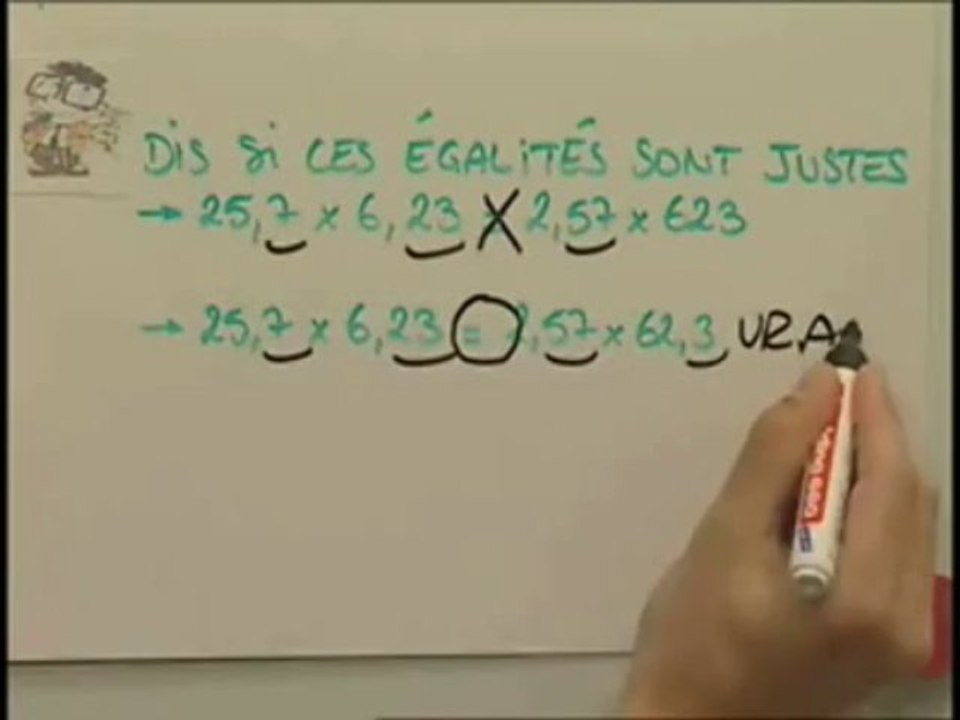 DIS SI CES ÉGALITÉS SONT JUSTES
→ 25,7 x 6,23 X 2,57 x 623
→ 25,7 x 6,23 = 2,57 x 62,3 VRA